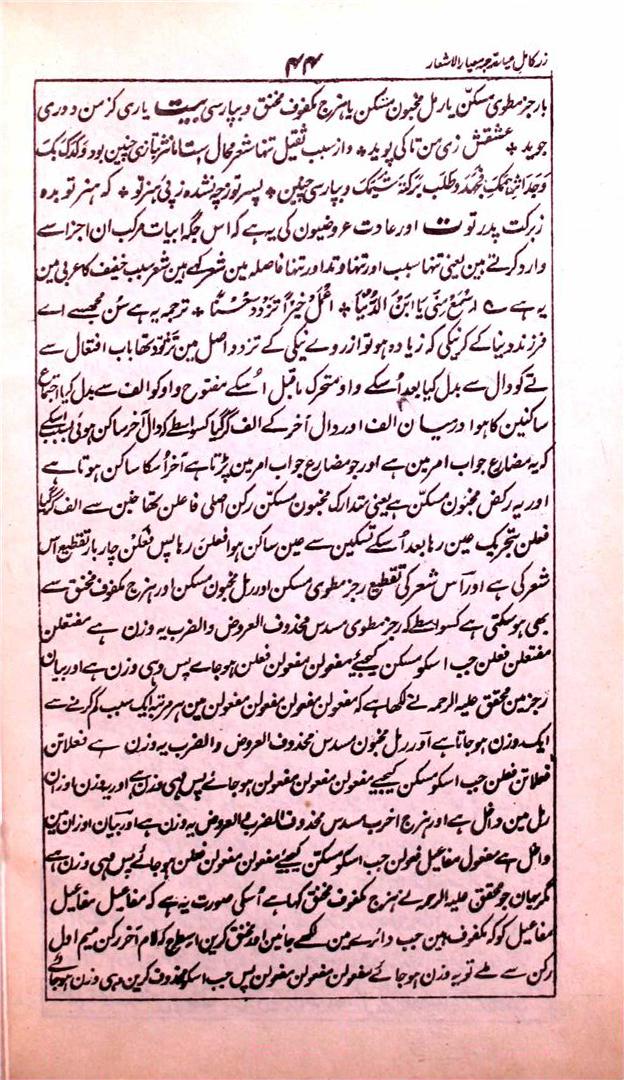 زر کامل عیار ترجمہ معیار الاشعار ۴۴
یا رجز مطوی مسکن یا رمل مخبون مسکن یا ہزج مکفوف مخنق و بپارسی بیت یاری کز من دوری
جوید * عشقش زی من تا کی پوید * و از سبب ثقیل تنہا شعر محال ست اما نثر تازی چنین بود
و طلب برکۃ و بپارسی چنین * پسر تو زچہ نشدہ زپئ ہنر تو * کہ ہنر تو بدہ
زبرکت پدر تو ت اور عادت عروضیون کی یہ ہے کہ اس جگہ ابیات مرکب ان اجزا سے
وارد کرتے ہین یعنی تنہا سبب اور تنہا وتد اور تنہا فاصلہ مین شعر کہے ہین شعر سبب خفیف کا عربی مین
یہ ہے ؎ اِسْمَعْ مِنِّی یَا ابْنَ الدُّنْیَا * اِعْمَلْ خَیْرًا تَزْدَدْ حُسْنًا * ترجمہ یہ ہے سُن مجھسے اے
فرزند دنیا کے کر نیکی کہ زیادہ ہو تو از روے نیکی کے تزدد اصل مین تزتود تھا باب افتعال سے
تے کو دال سے بدل کیا بعد اُسکے واو متحرک ماقبل اُسکے مفتوح واو کو الف سے بدل کیا اجتماع
ساکنین کا ہوا درمیان الف اور دال آخر کے الف گر گیا کسواسطے کہ دال آخر ساکن ہوئی بسبب اسکے
کہ یہ مضارع جواب امر مین ہے اور جو مضارع جواب امر مین پڑتا ہے آخر اُسکا ساکن ہوتا ہے
اور یہ رکض مخبون مسکن ہے یعنی متدارک مخبون مسکن رکن اصلی فاعلن تھا خبن سے الف گر گیا
فعلن بتحریک عین رہا بعد اُسکے تسکین سے عین ساکن ہوا فعلن رہا پس فعلن چار بار تقطیع اس
شعر کی ہے اور اس شعر کی تقطیع رجز مطوی مسکن اور رمل مخبون مسکن اور ہزج مکفوف مخنق سے
بھی ہو سکتی ہے کسواسطے کہ رجز مطوی مسدس محذوف العروض والضرب یہ وزن ہے مفتعلن
مفتعلن فعلن جب اسکو مسکن کیجیے مفعولن مفعولن فعلن ہو جاے پس وہی وزن ہے اور بیان
رجز مین محقق علیہ الرحمہ نے لکھا ہے کہ مفعولن مفعولن مفعولن مفعولن مین ہر مرتبہ ایک سبب کم کرنے سے
ایک وزن ہو جاتا ہے اور رمل مخبون مسدس محذوف العروض والضرب یہ وزن ہے فعلاتن
فعلاتن فعلن جب اسکو مسکن کیجیے مفعولن مفعولن مفعولن ہو جائے پس وہی وزن ہے اور یہ وزن اوزان
رمل مین داخل ہے اور ہزج اخرب مسدس محذوف الضرب والعروض یہ وزن ہے اور بیان اوزان مین
داخل ہے مفعول مفاعیل فعولن جب اسکو مسکن کیجئے مفعولن مفعولن فعلن ہو جائے پس وہی وزن ہے
مگر یہان جو محقق علیہ الرحمہ نے ہزج مکفوف مخنق کہا ہے اُسکی صورت یہ ہے کہ مفاعیل مفاعیل
مفاعیل کو کہ مکفوف ہین جب دائرے مین لکھے جائین اور مخنق کرین اسطرح کہ لام آخر رکن میم اول
رکن سے ملے تو یہ وزن ہو جائے مفعولن مفعولن مفعولن پس جب اسکو محذوف کرین وہی وزن ہو جائے